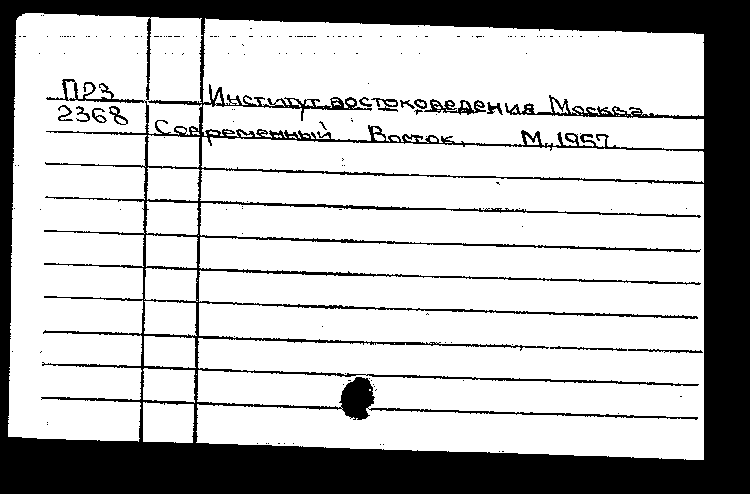 ПРЗ Институт востоковедения Москва.
2368 Современный Восток, М., 1957.